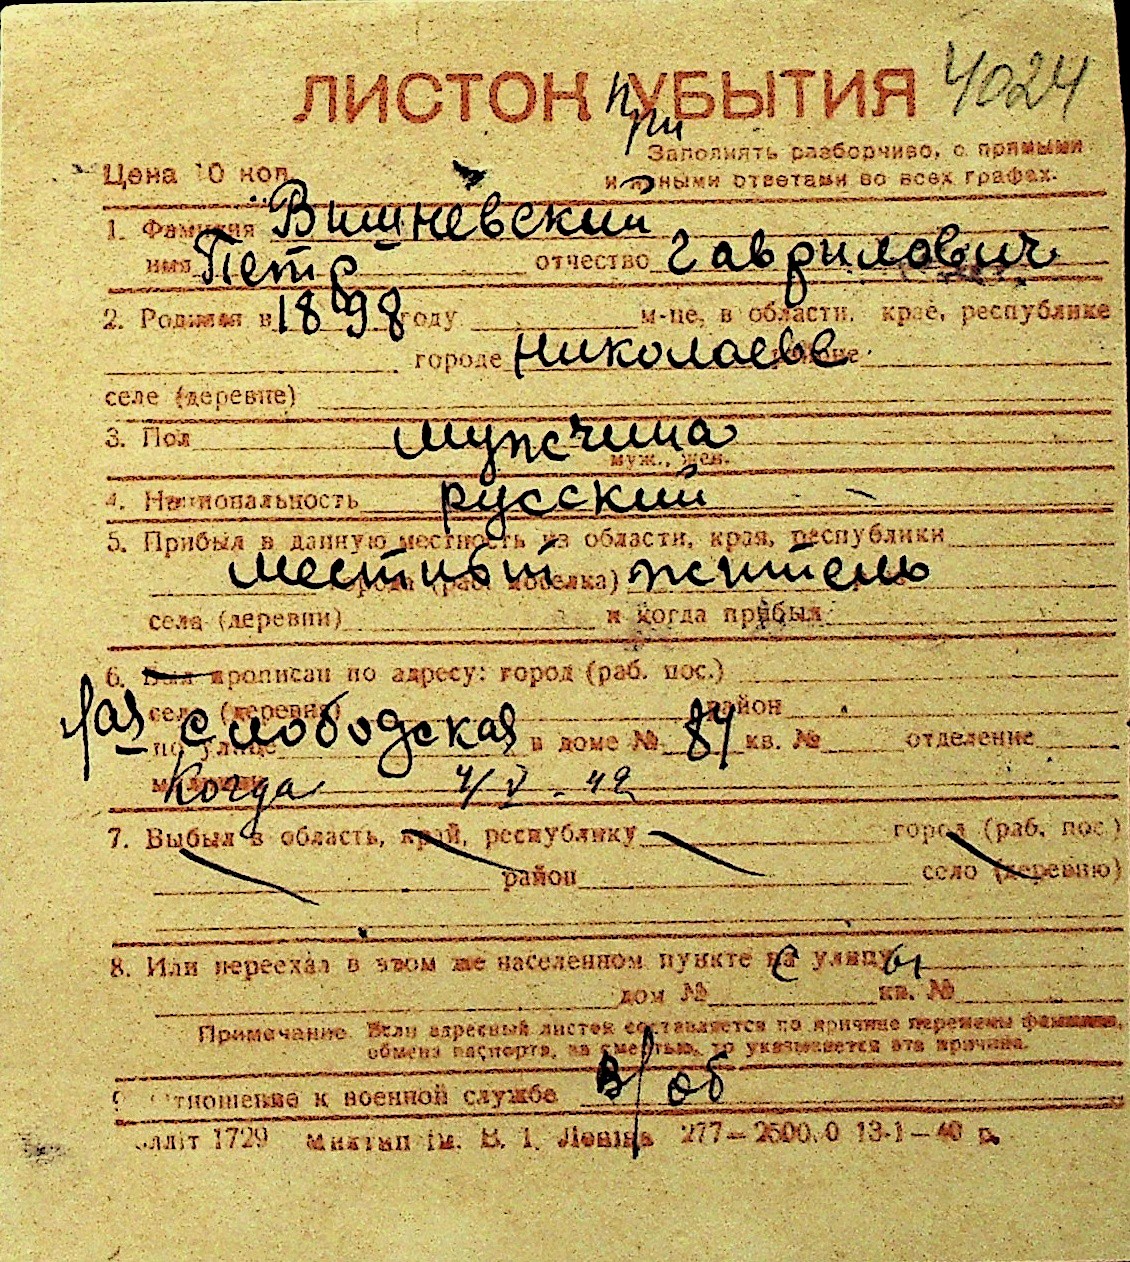 ЛИСТОК при УБЫТИЯ 4024
Цена 10 коп.
Заполнять разборчиво, с прямыми
и ясными ответами во всех графах.
1. Фамилия Вишневский
имя Петр отчество Гаврилович
2. Родился в 1898 году м-це, в области, крае, республике
городе Николаеве районе
селе (деревне)
3. Пол мужчина
муж., жен.
4. Национальность русский
5. Прибыл в данную местность из области, края, республики
местный житель
города (раб. поселка)
села (деревни) и когда прибыл
6. Был прописан по адресу: город (раб. пос.)
село (деревня) район
по улице Слободская в доме № 84 кв. № отделение
милиции Когда 4/V - 42
7. Выбыл в область, край, республику город (раб. пос.)
район село (деревню)
8. Или переехал в этом же населенном пункте с улицы
дом № кв. №
Примечание. Если адресный листок составляется по причине перемены фамилии,
обмена паспорта, за смертью, то указывается эта причина.
9. Отношение к военной службе в/об
1729 ім. В. І. Леніна 13-1-40 р.